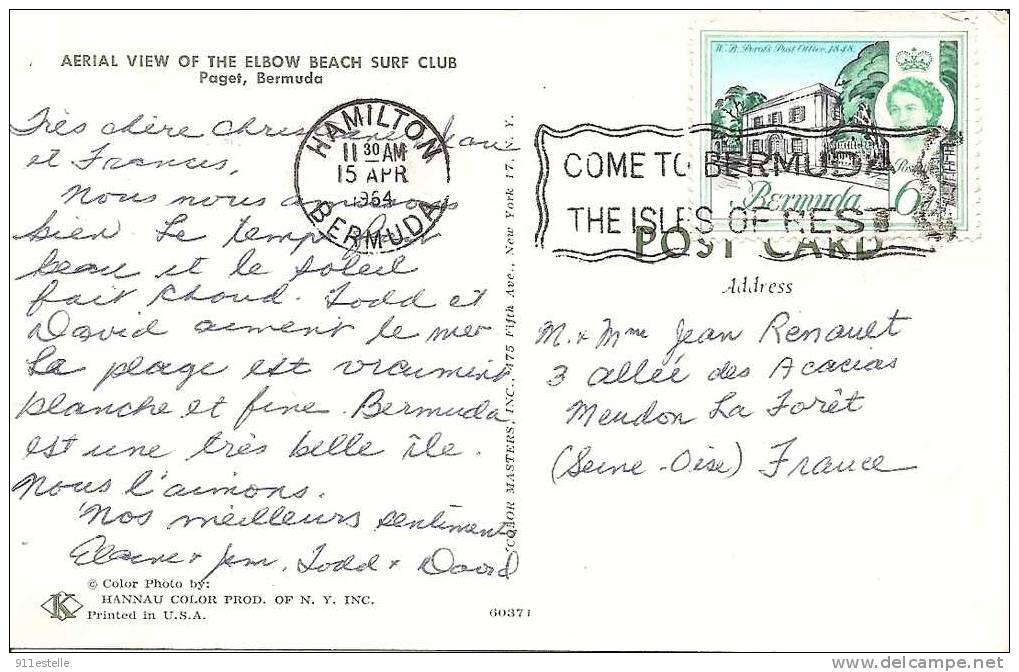 AERIAL VIEW OF THE ELBOW BEACH SURF CLUB
Paget, Bermuda
Très chère Christiane, Jean
et Frances,
Nous nous amusons
bien. Le temps fait
beau et le soleil
fait chaud. Todd et
David aiment le mer
La plage est vraiment
blanche et fine. Bermuda
est une très belle île.
Nous l'aimons.
Nos meilleurs sentiments
Elaine + Jim, Todd + David
© Color Photo by:
HANNAU COLOR PROD. OF N. Y. INC.
Printed in U.S.A.
K
60371
COLOR MASTERS, INC., 475 Fifth Ave., New York 17, N. Y.
HAMILTON
11 30 AM
15 APR
1964
BERMUDA
COME TO BERMUDA
THE ISLES OF REST
W. B. Perot's Post Office, 1848.
Bermuda
6
POST CARD
Address
M. + Mme Jean Renault
3 allée des Acacias
Meudon La Forêt
(Seine-Oise) France
911estelle
http://www.delcampe.net